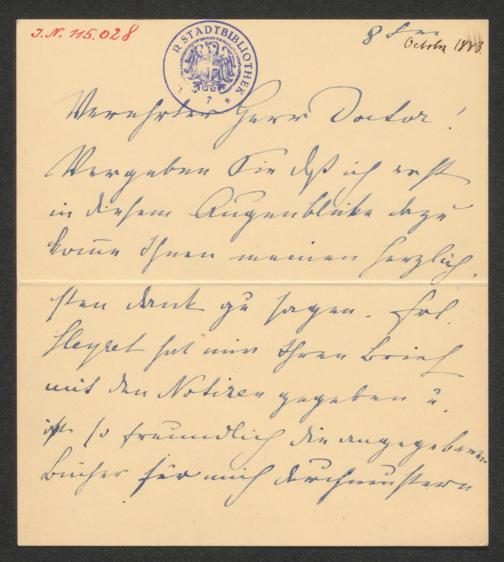 J.N. 115.028
R STADTBIBLIOTHEK
8
October 1883.
Verehrter Herr Doctor!
Vergeben Sie daß ich erst
in diesem Augenblicke dazu
komme Ihnen meinen herzlich-
sten Dank zu sagen. Frl.
hat mir Ihren Brief
mit den Notizen gegeben u.
ist so freundlich die angegebenen
Bücher für mich durchmustern